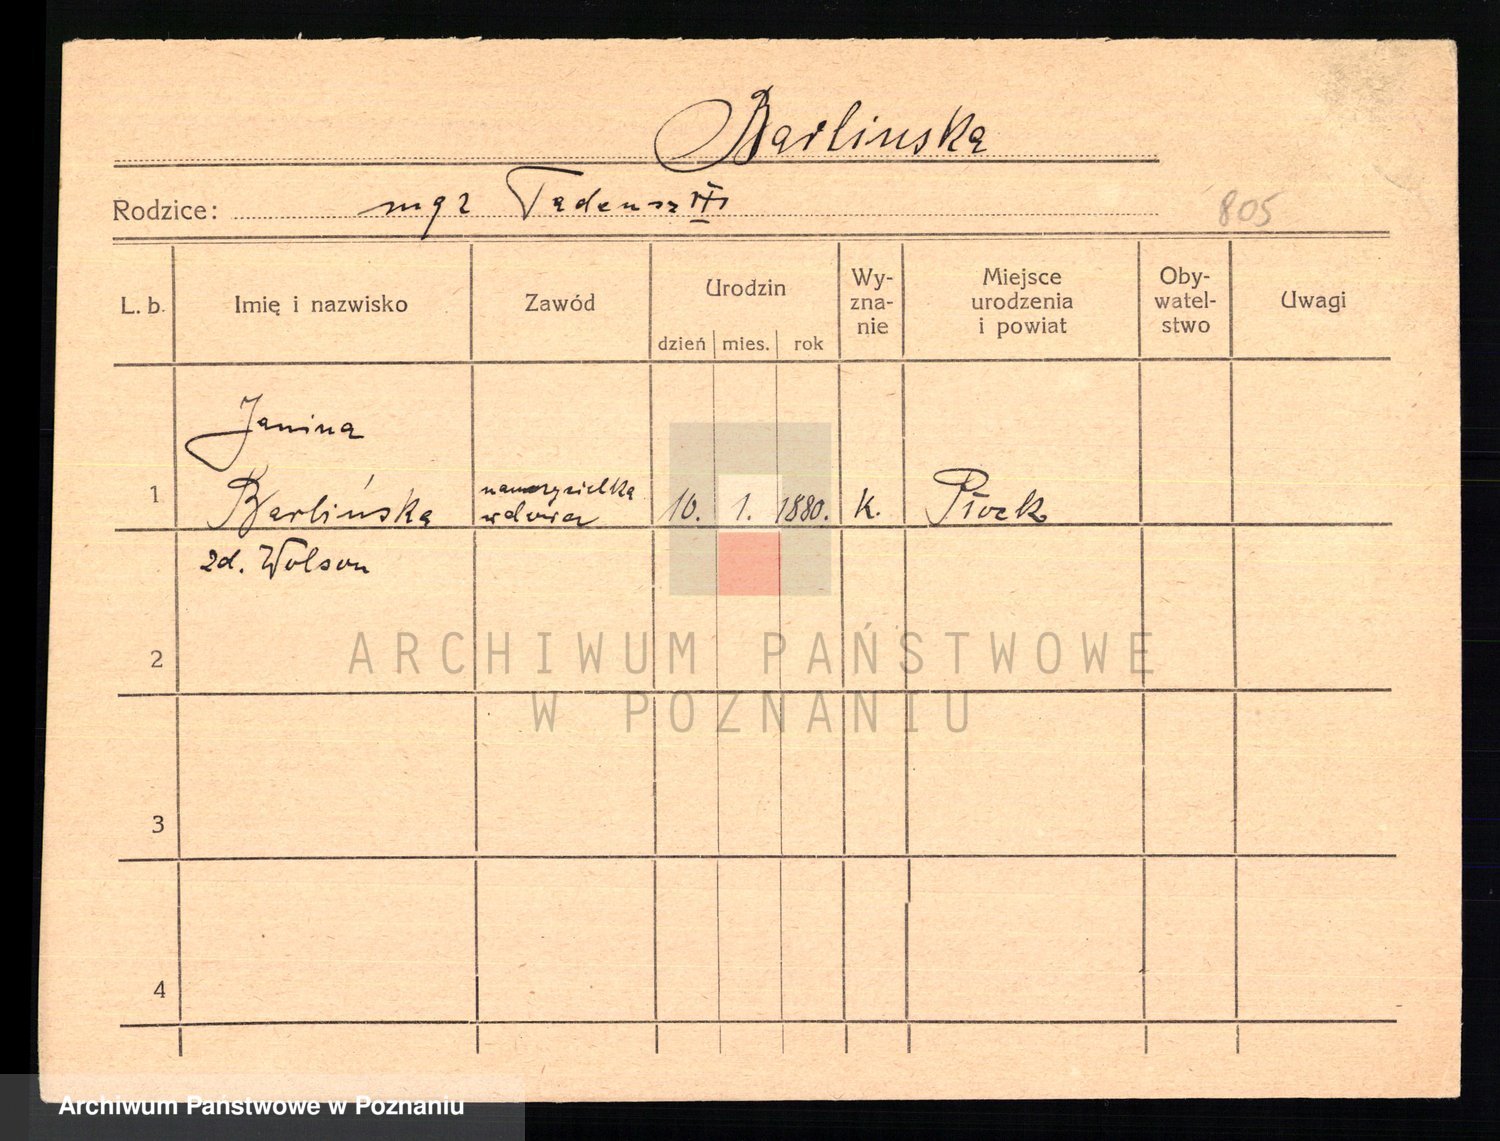 Barlinska
Rodzice: mgr Tadeusz
805
L. b. Imię i nazwisko Zawód Urodzin dzień mies. rok Wy-zna-nie Miejsce urodzenia i powiat Oby-watel-stwo Uwagi
Janina
1 Barlińska nauczycielka wdowa 10. 1. 1880. K. Płock
zd. Wolson
2
3
4
ARCHIWUM PAŃSTWOWE
W POZNANIU
Archiwum Państwowe w Poznaniu